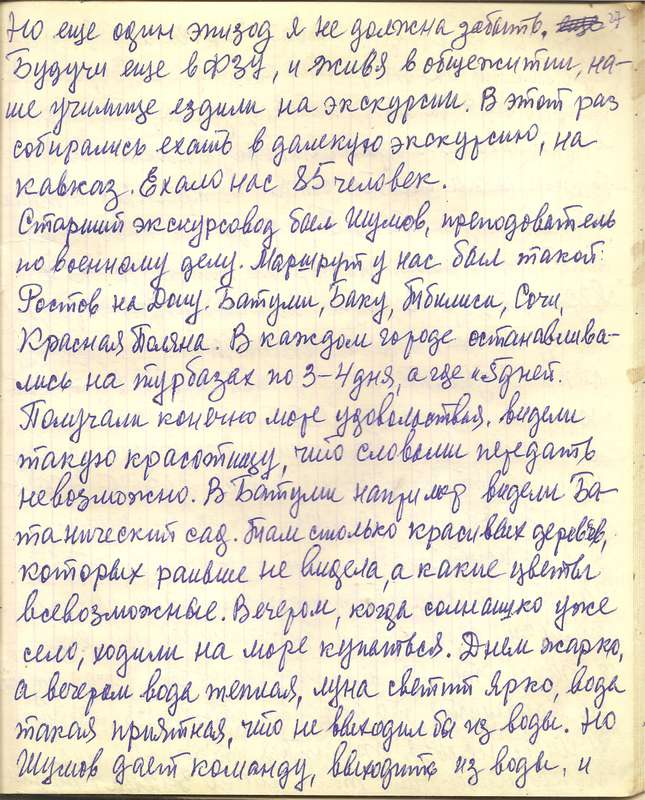 Но еще один эпизод я не должна забыть. 27
Будучи еще в ФЗУ, и живя в общежитии, на-
ше училище ездили на экскурсии. В этот раз
собирались ехать в далекую экскурсию, на
кавказ. Ехало нас 85 человек.
Старший экскурсовод был Шумов, преподователь
по военному делу. Маршрут у нас был такой:
Ростов на Дону. Батуми, Баку, Тбилиси, Сочи,
Красная Поляна. В каждом городе останавлива-
лись на турбазах по 3-4 дня, а где и 5 дней.
Получали конечно море удовольствия. видели
такую красотищу, что словами передать
невозможно. В Батуми например видели Ба-
танический сад. Там столько красивых деревьев,
которых раньше не видела, а какие цветы
всевозможные. Вечером, когда солнашко уже
село, ходили на море купаться. Днем жарко,
а вечером вода теплая, луна светит ярко, вода
такая приятная, что не выходил бы из воды. Но
Шумов дает команду, выходить из воды, и